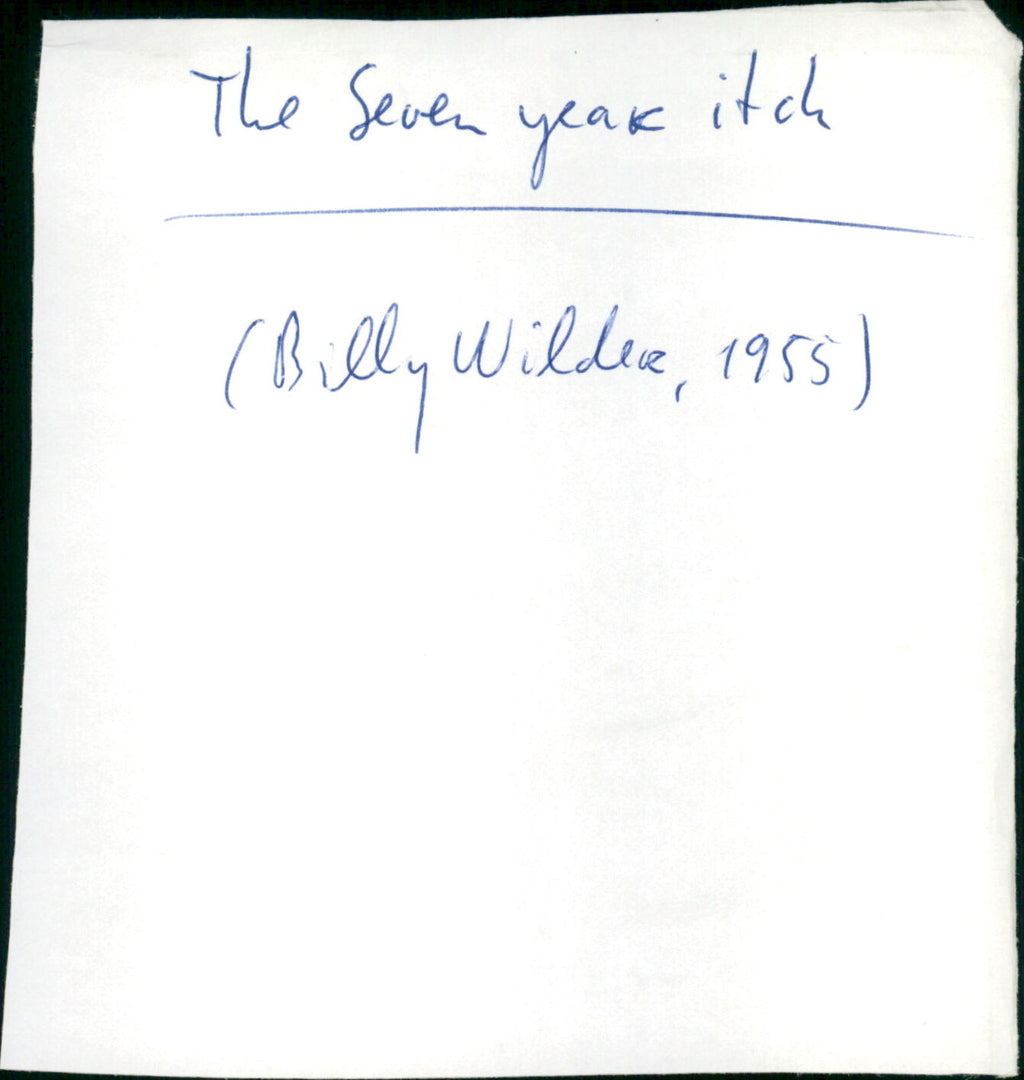 The Seven year itch
(Billy Wilder, 1955)